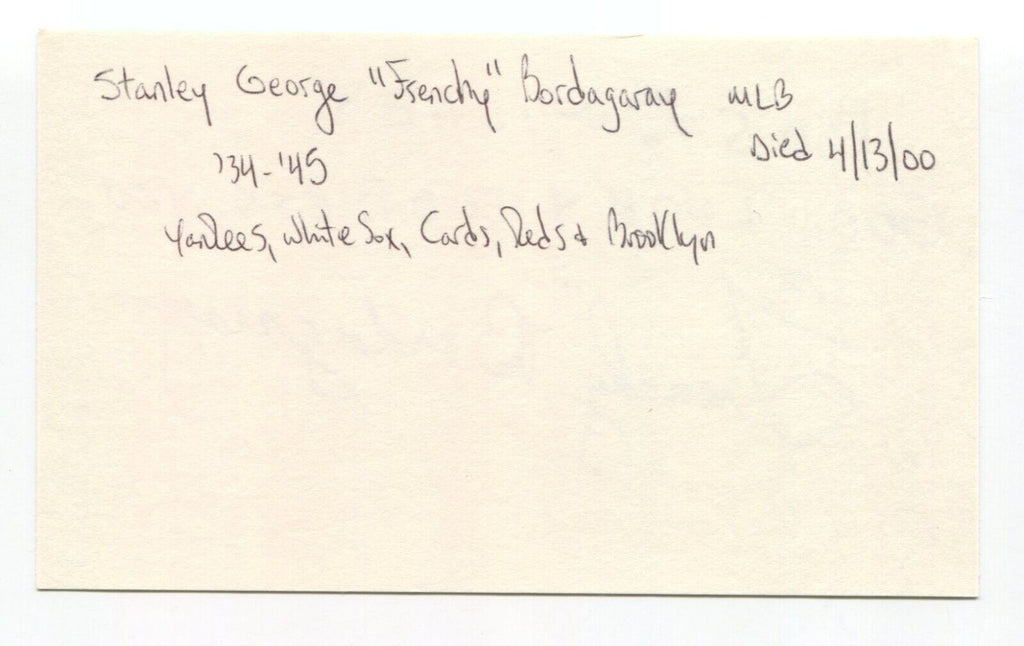 Stanley George "Frenchy" Bordagaray MLB
Died 4/13/00
'34-'45
Yankees, White Sox, Cards, Reds & Brooklyn